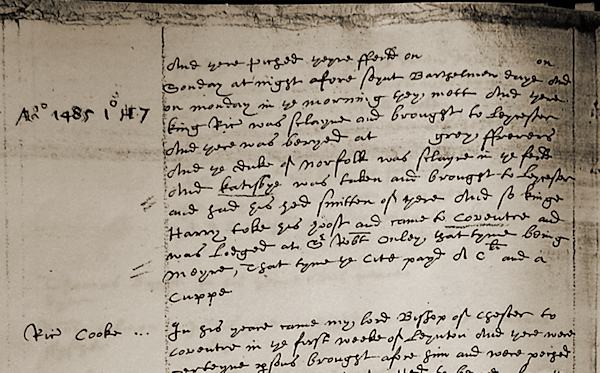 And there pitched theyre ffeild on on
Sonday at night afore seynt Barthelmew daye And
Ano 1485 1o H 7 on monday in ye morning they mett And there
king Ric was slayne and brought to Leycester
And there was beryed at grey ffreers
And ye duke of Norfolk was slayne in ye feild
And Katisbye was taken and brought to Leycester
and had his hed smitten of there And so kinge
Harry toke his Joost and came to Coventre and
was Lodged at Robt Onley, that tyme being
Meyre, That tyme ye Cite payd C and a
Cuppe
Ric Cooke ... In his yeare came my lord Bishop of Chester to
Coventre in ye first weeke of Leynton And there were
certeyne psons brought afore him and were peched